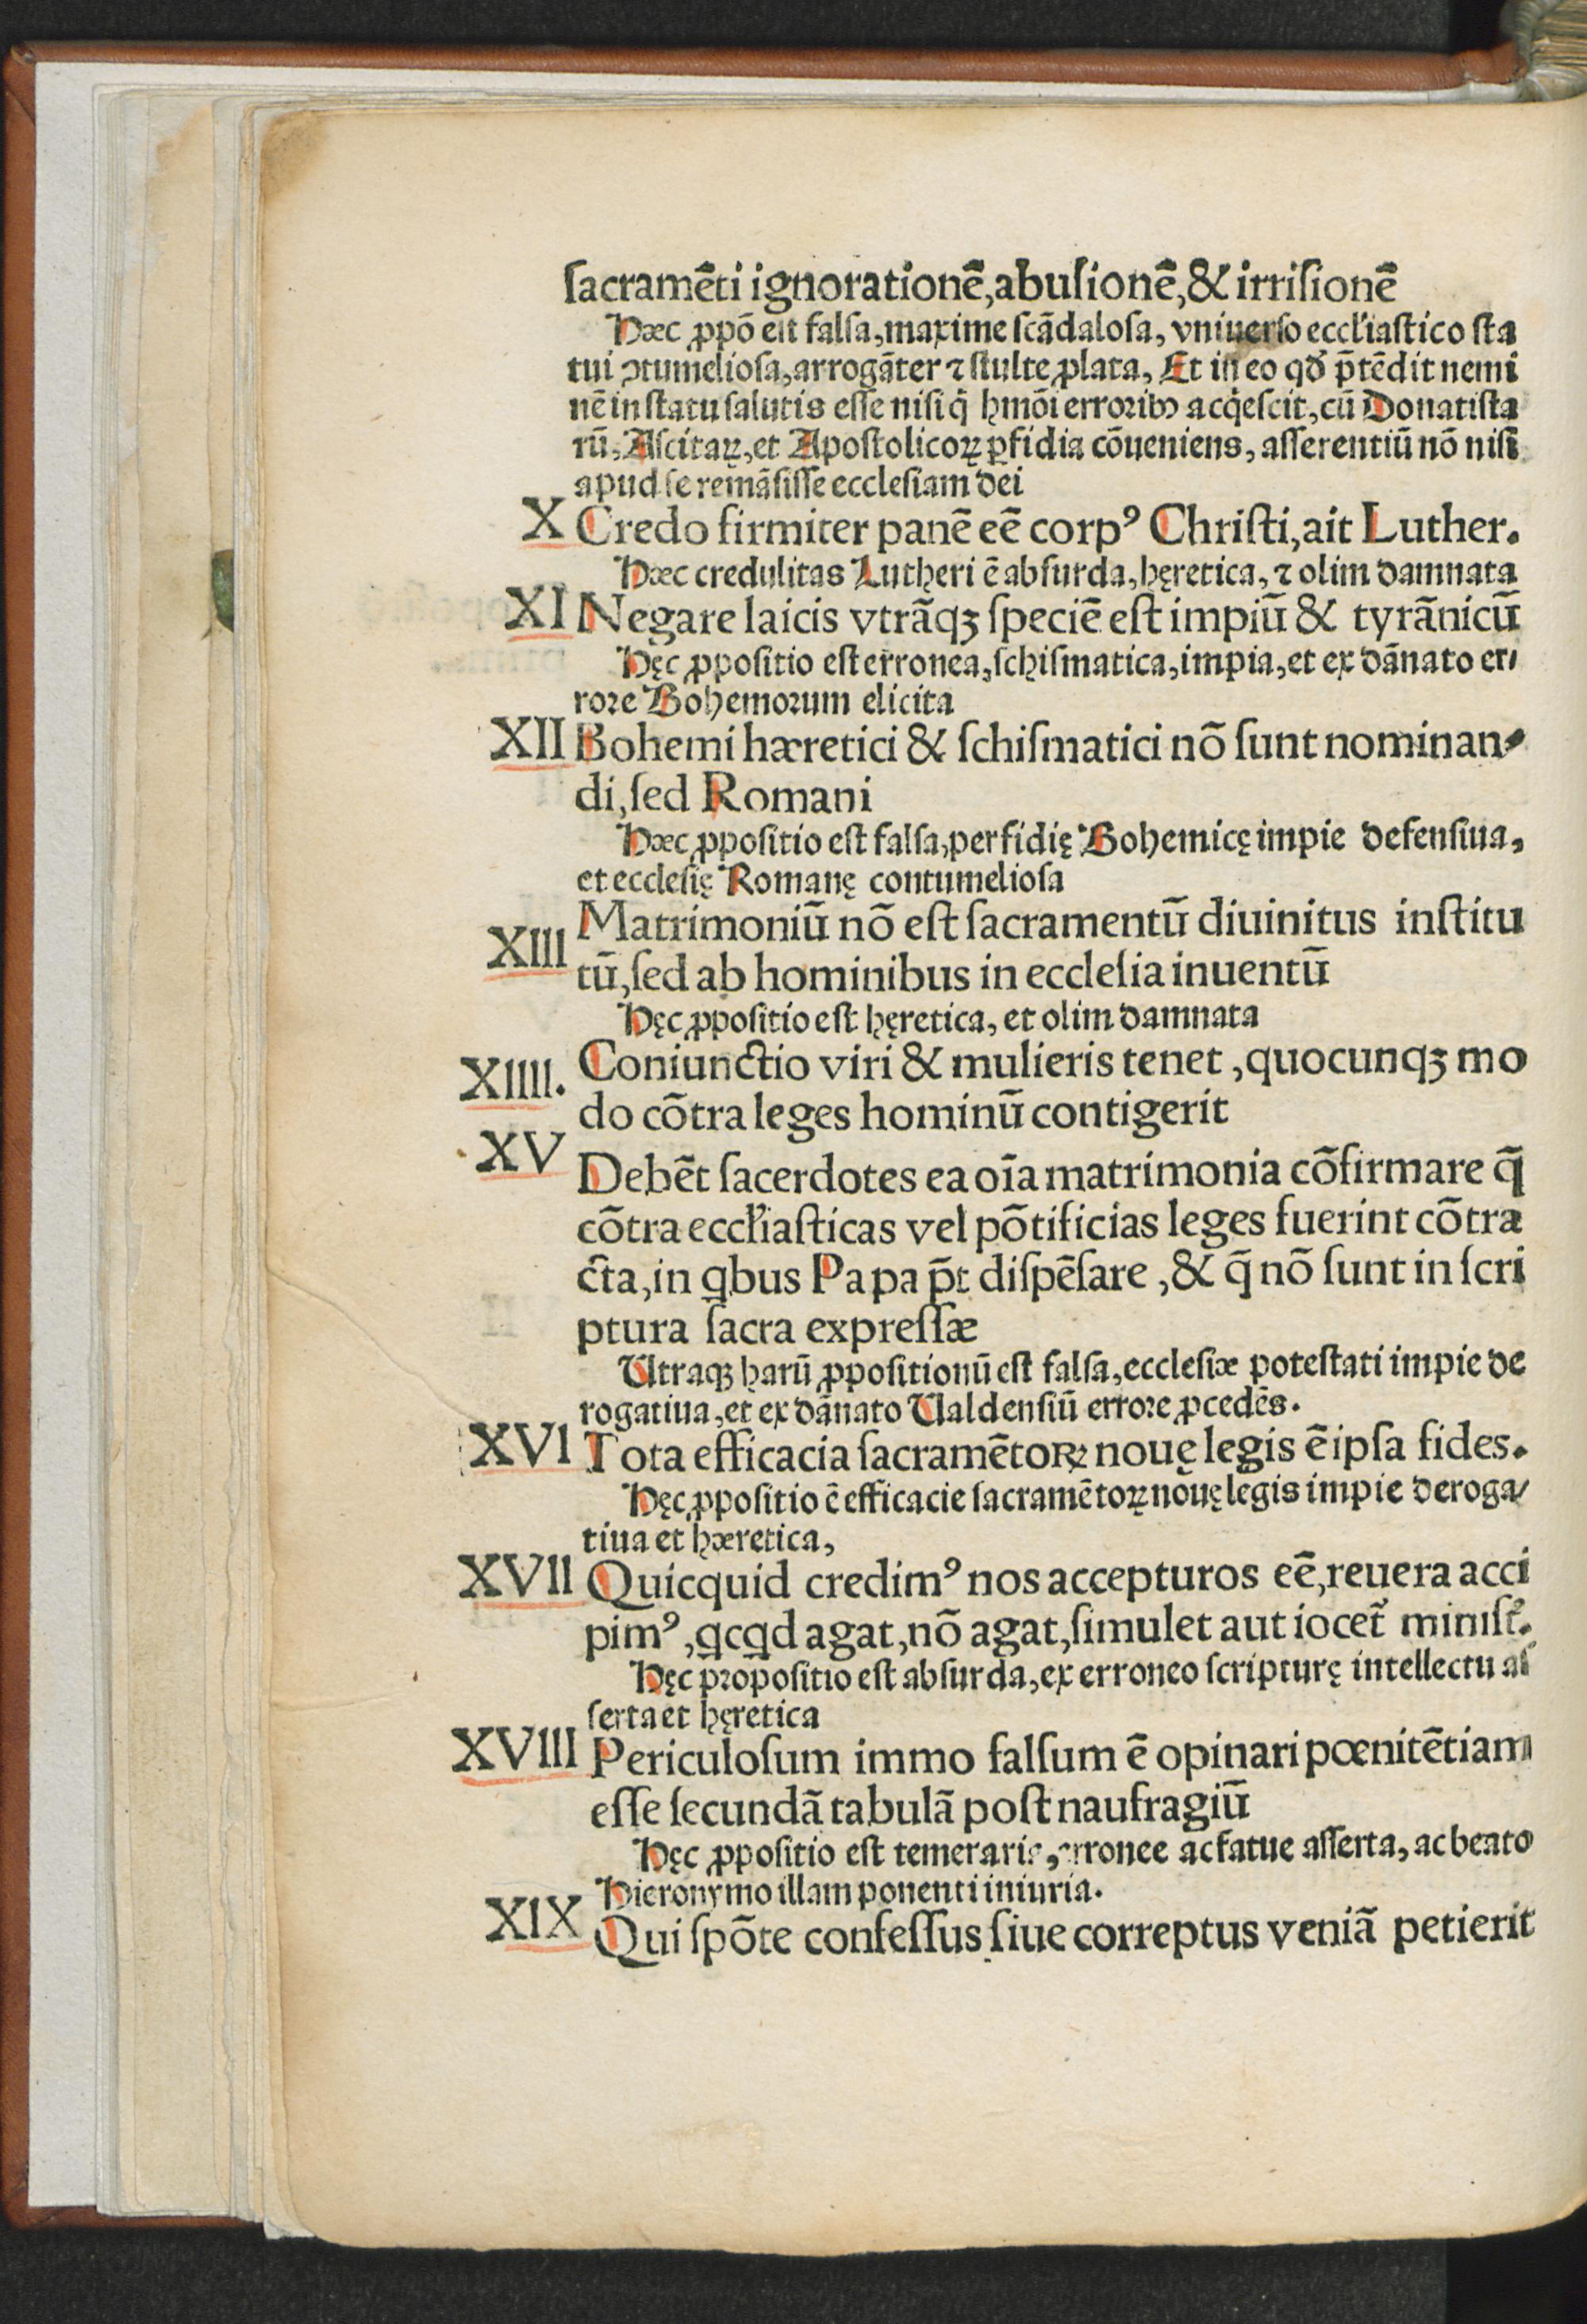 ſacramēti ignorationē,abuſionē,& irriſionē
Hæc ꝓpō eſt falſa,maxime ſcādaloſa, vniuerſo eccľiaſtico ſta
tui ↄtumelioſa,arrogāter ⁊ ſtulte ꝓlata, Et in eo qď p̄tēdit nemi
nē in ſtatu ſalutis eſſe niſi q̇ hmōi erroribꝰ acq̇eſcit,cū Donatiſta
rū, Aſcitaꝝ,et Apoſtolicoꝝ ꝑfidia cōueniens, aſſerentiū nō niſi
apud ſe remāſiſſe eccleſiam dei
X Credo firmiter panē eē corpꝰ Chriſti,ait Luther.
Hæc credulitas Lutheri ē abſurda,hęretica, ⁊ olim damnata
XI Negare laicis vtrāqꝫ ſpeciē eſt impiū & tyrānicū
Hęc ꝓpoſitio eſt erronea,ſchiſmatica,impia,et ex dānato er⸗
rore Bohemorum elicita
XII Bohemi hæretici & ſchiſmatici nō ſunt nominan⸗
di,ſed Romani
Hæc ꝓpoſitio eſt falſa,perfidię Bohemicę impie defenſiua,
et eccleſię Romanę contumelioſa
XIII Matrimoniū nō eſt ſacramentū diuinitus inſtitu
tū,ſed ab hominibus in eccleſia inuentū
Hęc ꝓpoſitio eſt hęretica, et olim damnata
XIIII. Coniunctio viri & mulieris tenet ,quocunqꝫ mo
do cōtra leges hominū contigerit
XV Debēt ſacerdotes ea oīa matrimonia cōfirmare q̄
cōtra eccľiaſticas vel pōtificias leges fuerint cōtra
c̄ta,in ꝗbus Papa p̄t diſpēſare ,& q̄ nō ſunt in ſcri
ptura ſacra expreſſæ
Utraqꝫ harū ꝓpoſitionū eſt falſa,eccleſiæ poteſtati impie de
rogatiua,et ex dānato Ualdenſiū errore ꝓcedēs.
XVI Tota efficacia ſacramētoꝝ nouę legis ē ipſa fides.
Hęc ꝓpoſitio ē efficacie ſacramētoꝝ nouę legis impie deroga⸗
tiua et hæretica,
XVII Quicquid credimꝰ nos accepturos eē,reuera acci
pimꝰ ,ꝗcꝗd agat,nō agat,ſimulet aut iocet᷑ miniſt᷑.
Hęc propoſitio eſt abſurda,ex erroneo ſcripturę intellectu aſ
ſerta et hęretica
XVIII Periculoſum immo falſum ē opinari pœnitētiam
eſſe ſecundā tabulā poſt naufragiū
Hęc ꝓpoſitio eſt temerarie,erronee ac fatue aſſerta, ac beato
Hieronymo illam ponenti iniuria.
XIX Qui ſpōte confeſſus ſiue correptus veniā petierit